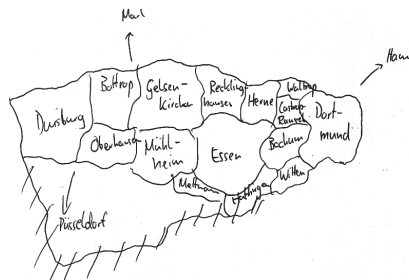 Marl
Hamm
Bottrop
Gelsen-
kirchen
Reckling-
hausen
Herne
Waltrop
Castrop
Rauxel
Dort-
mund
Duisburg
Oberhausen
Mühl-
heim
Essen
Bochum
Witten
Mettmann
Hattingen
Düsseldorf